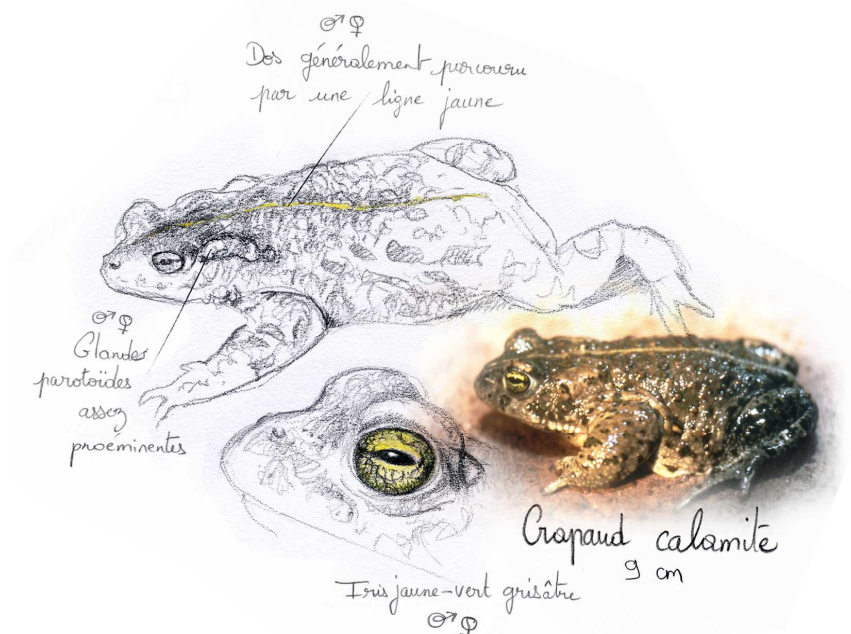 ♂♀
Dos généralement parcouru
par une ligne jaune
♂♀
Glandes
parotoïdes
assez
proéminentes
Crapaud calamite
9 cm
Iris jaune-vert grisâtre
♂♀